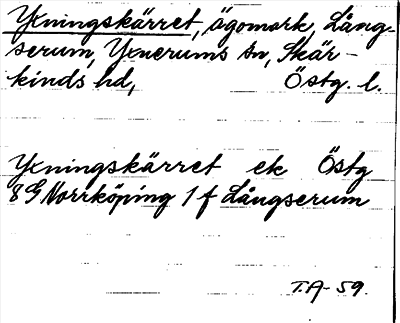 Yxningskärret, ägomark, Lång-
serum, Yxnerums sn, Skär-
kinds hd, Östg. l.
Yxningskärret ek Östg
8G Norrköping 1 f Långserum
T.A- 59.